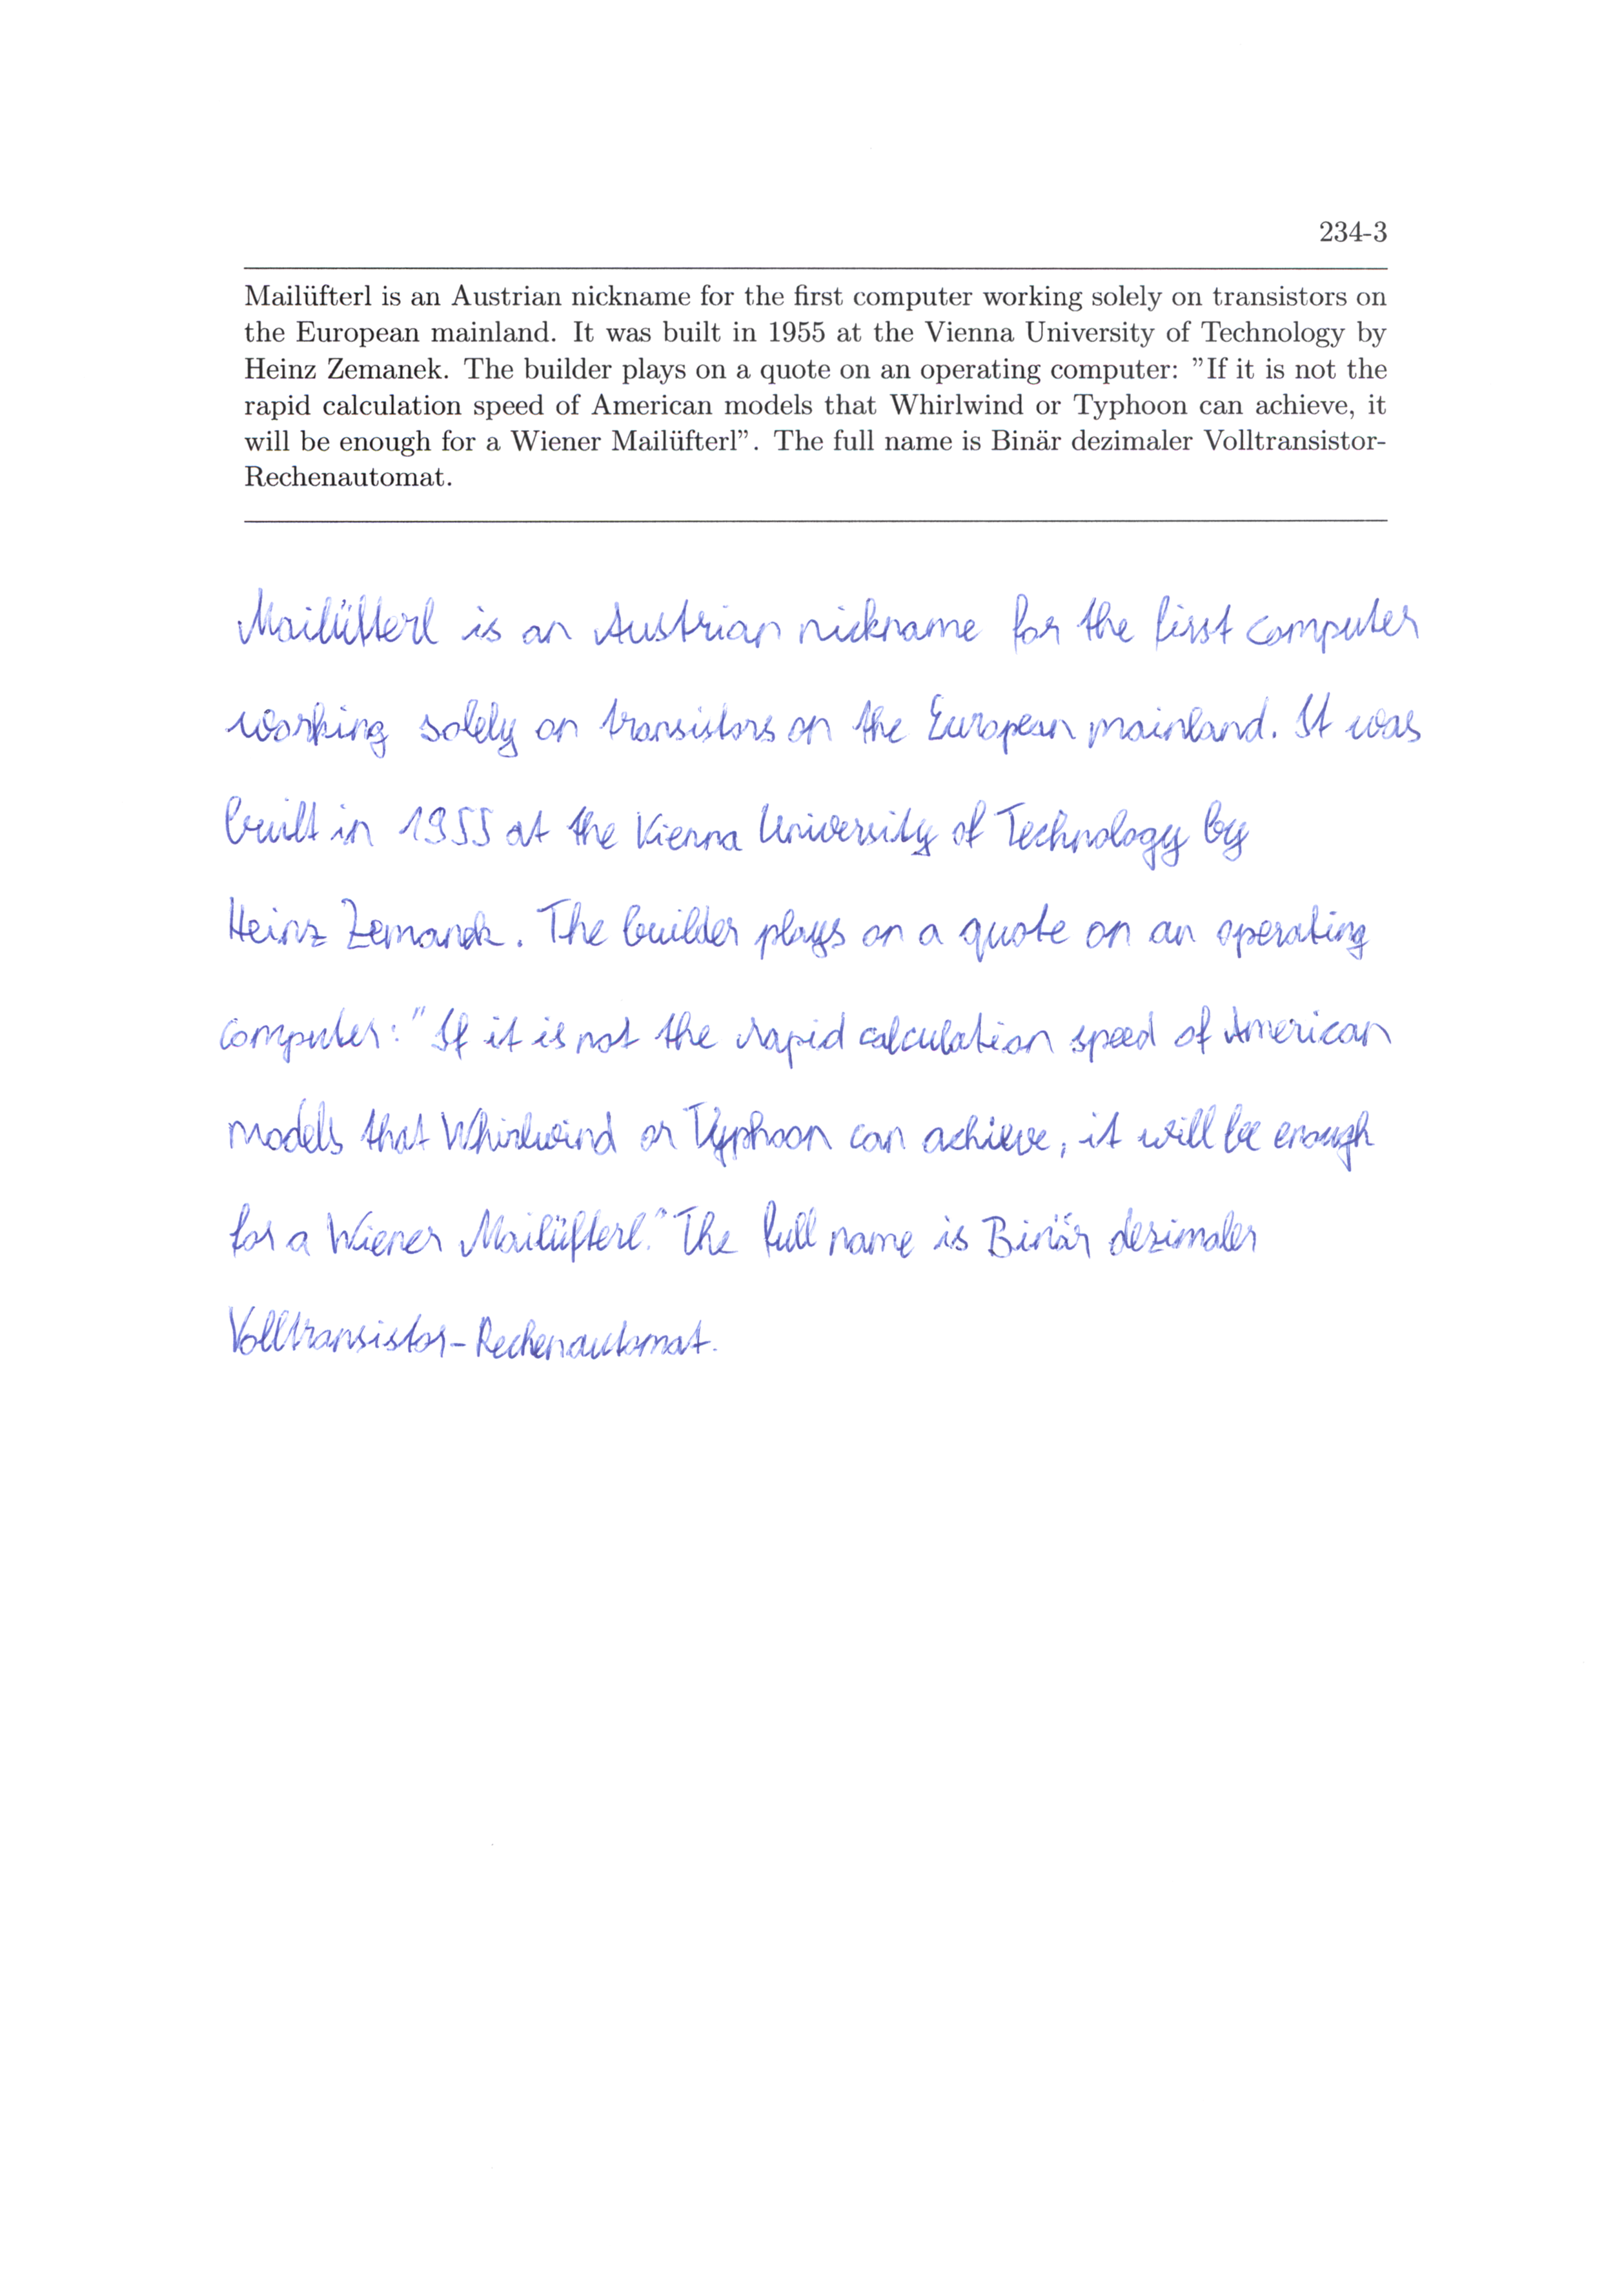 234-3
Mailüfterl is an Austrian nickname for the first computer working solely on transistors on
the European mainland. It was built in 1955 at the Vienna University of Technology by
Heinz Zemanek. The builder plays on a quote on an operating computer: ”If it is not the
rapid calculation speed of American models that Whirlwind or Typhoon can achieve, it
will be enough for a Wiener Mailüfterl”. The full name is Binär dezimaler Volltransistor-
Rechenautomat.
Mailüfterl is an Austrian nickname for the first computer
working solely on transistors on the European mainland. It was
built in 1955 at the Vienna University of Technology by
Heinz Zemanek. The builder plays on a quote on an operating
computer: "If it is not the rapid calculation speed of American
models that Whirlwind or Typhoon can achieve, it will be enough
for a Wiener Mailüfterl." The full name is Binär dezimaler
Volltransistor-Rechenautomat.